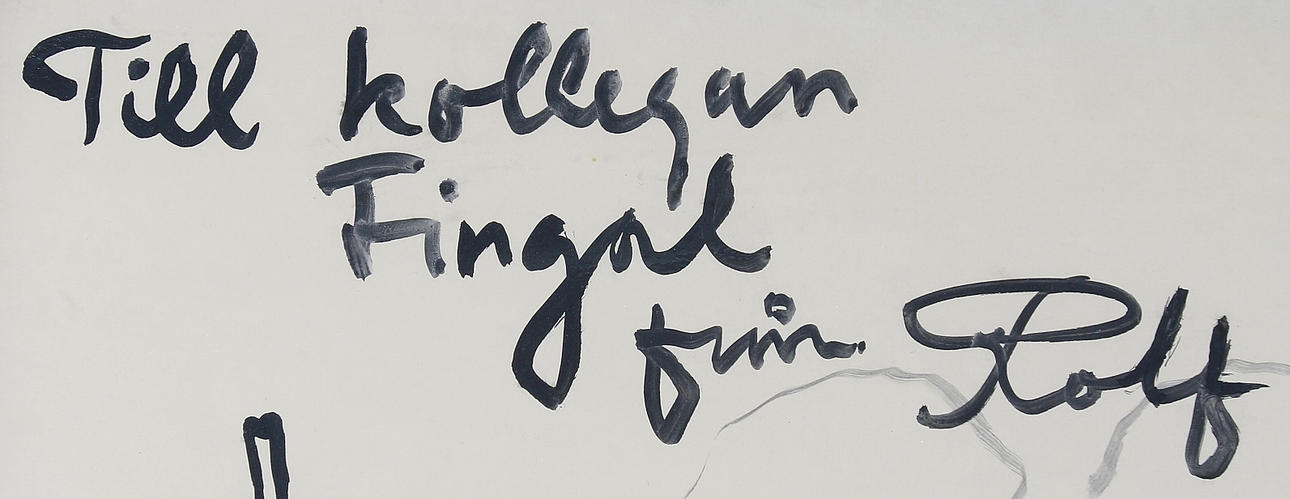 Till kollegan
Fingal
från Rolf